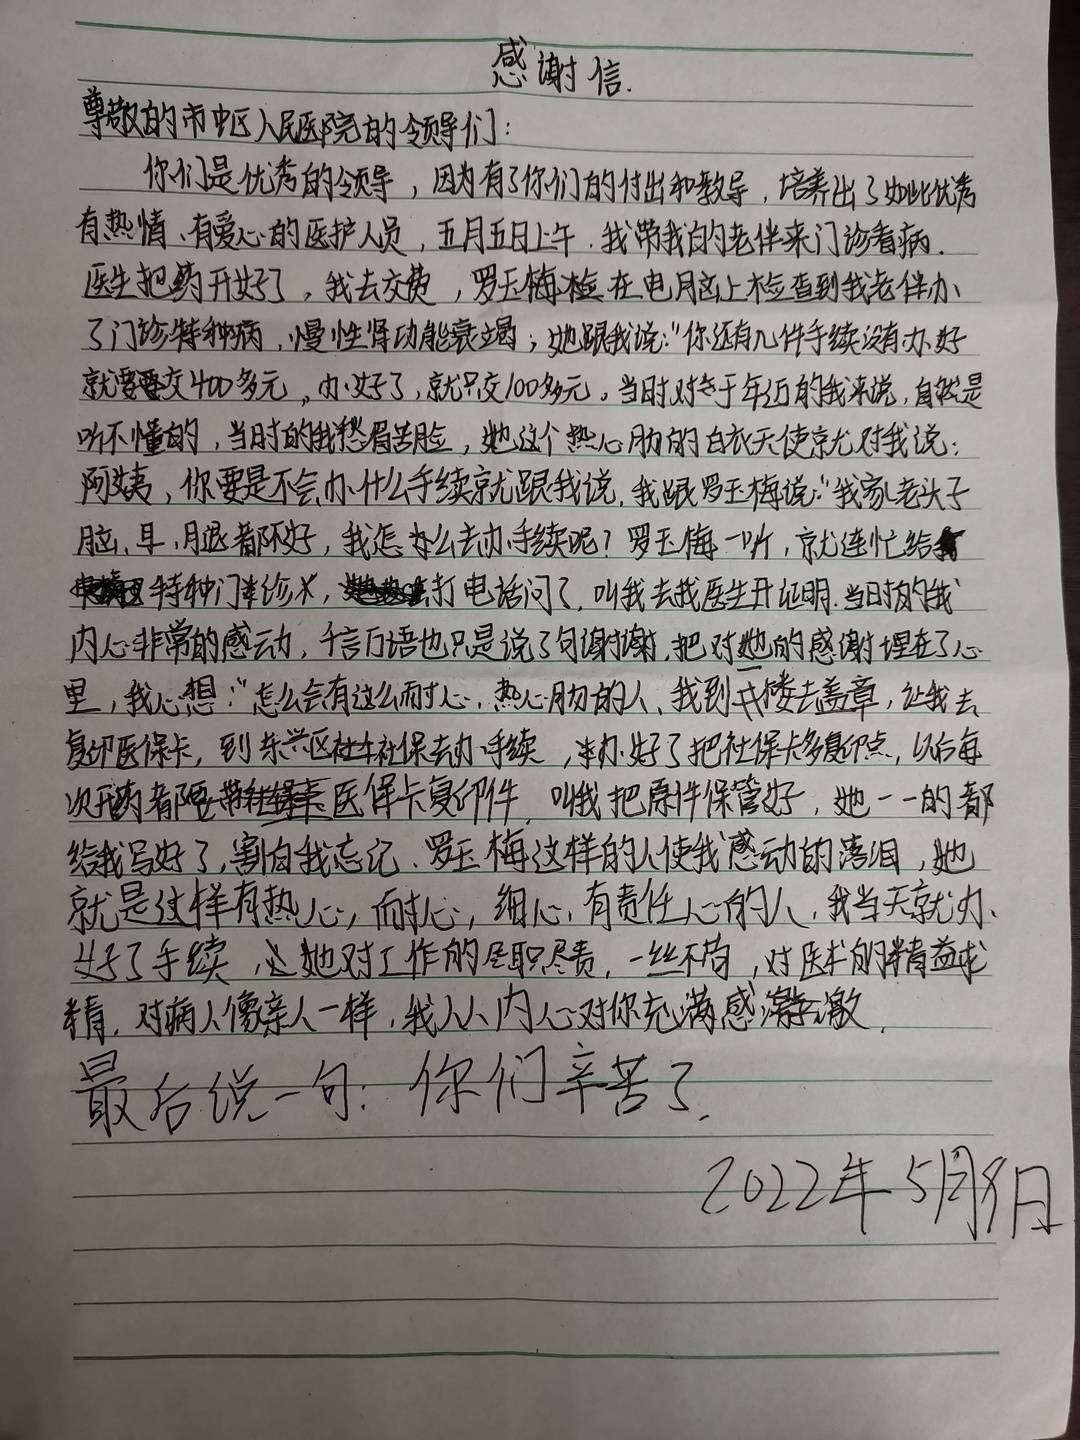 感谢信.
尊敬的市中区人民医院的领导们：
你们是优秀的领导，因为有了你们的付出和教导，培养出了如此优秀
有热情、有爱心的医护人员，五月五日上午．我带我的老伴来门诊看病．
医生把药开好了，我去交费，罗玉梅检在电脑上检查到我老伴办
了门诊特种病，慢性肾功能衰竭；她跟我说：“你还有几件手续没有办好
就要交400多元，办好了，就只交100多元。当时对于年迈的我来说，自然是
听不懂的，当时的我愁眉苦脸，她这个热心肠的白衣天使就对我说：
阿姨，你要是不会办什么手续就跟我说，我跟罗玉梅说：“我家老头子
脑、耳、腿都不好，我怎么去办手续呢？罗玉梅一听，就连忙给
特种门诊，打电话问了，叫我去找医生开证明．当时的我
内心非常的感动，千言万语也只是说了句谢谢，把对她的感谢埋在了心
里，我心想：“怎么会有这么耐心，热心肠的人，我到楼去盖章，让我去
复印医保卡，到东兴区社保去办手续，办好了把社保卡多复印点，以后每
次开药都要带医保卡复印件，叫我把原件保管好，她一一的都
给我写好了，害怕我忘记．罗玉梅这样的人使我感动的落泪，她
就是这样有热心，耐心，细心，有责任心的人，我当天就办
好了手续，她对工作的尽职尽责，一丝不苟，对医术的精益求
精，对病人像亲人一样，我从内心对你充满感激．
最后说一句：你们辛苦了．
2022年5月9日